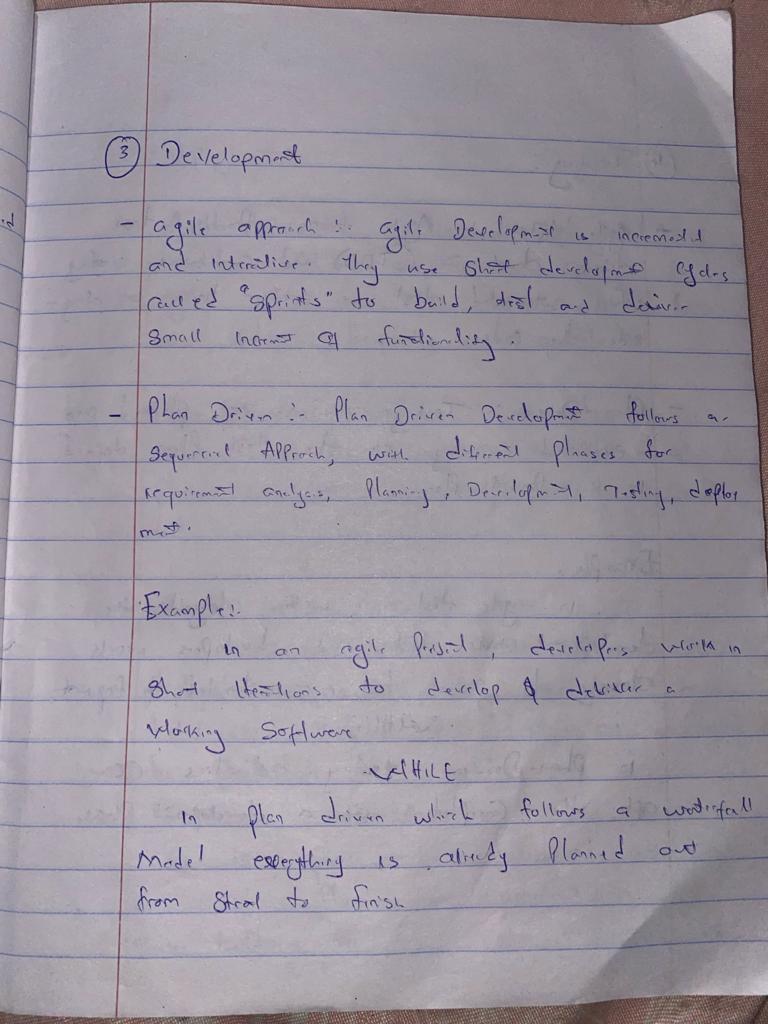 ③ Development
- agile approach :- agile Development is incremental
and interative. They use short development cycles
called "Sprints" to build, test and deliver
small increment of functionality.
- Plan Driven :- Plan Driven Development follows a
Sequencial Approch, with different phases for
requirement analysis, Planning, Development, Testing, deploy
ment.
Example:-
In an agile Project, developers work in
short Iterations to develop & deliver a
working Software
WHILE
In plan driven which follows a waterfall
Model everything is already Planned out
from Strat to finish